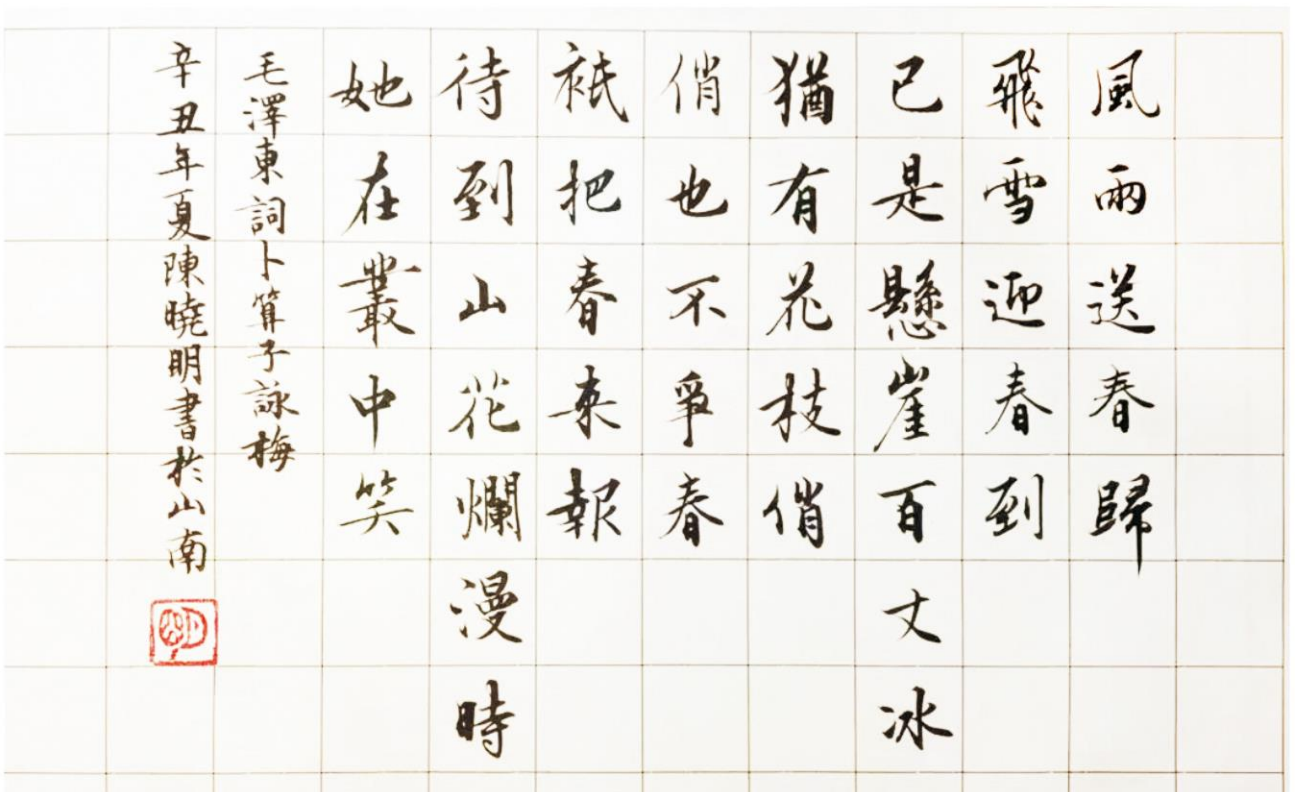 風雨送春歸
飛雪迎春到
已是懸崖百丈冰
猶有花枝俏
俏也不爭春
祇把春來報
待到山花爛漫時
她在叢中笑
毛澤東詞卜算子詠梅
辛丑年夏陳曉明書於山南
明